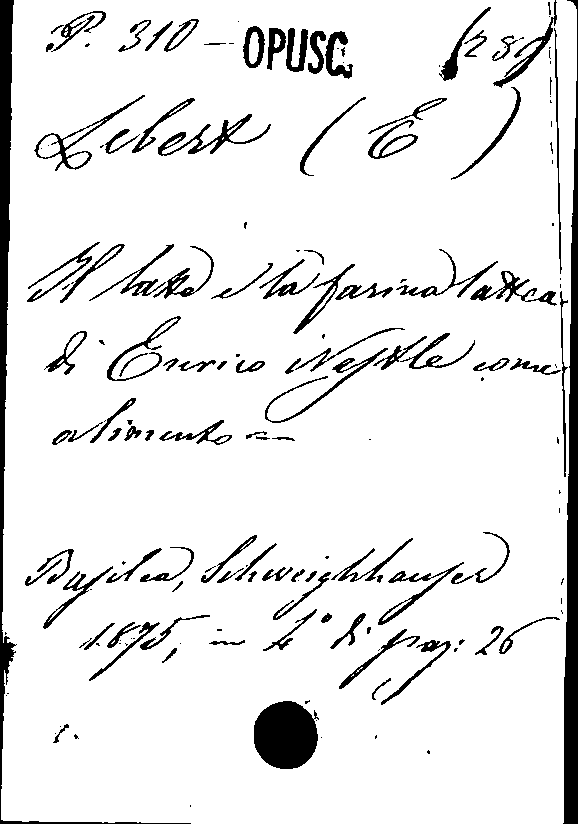 P. 310 – OPUSC. (289
Lebert (E)
Il latte e la farina lattea
di Enrico Nestle come
alimento =
Basilea, Schweighhauser
1875, in 4° di pag: 26